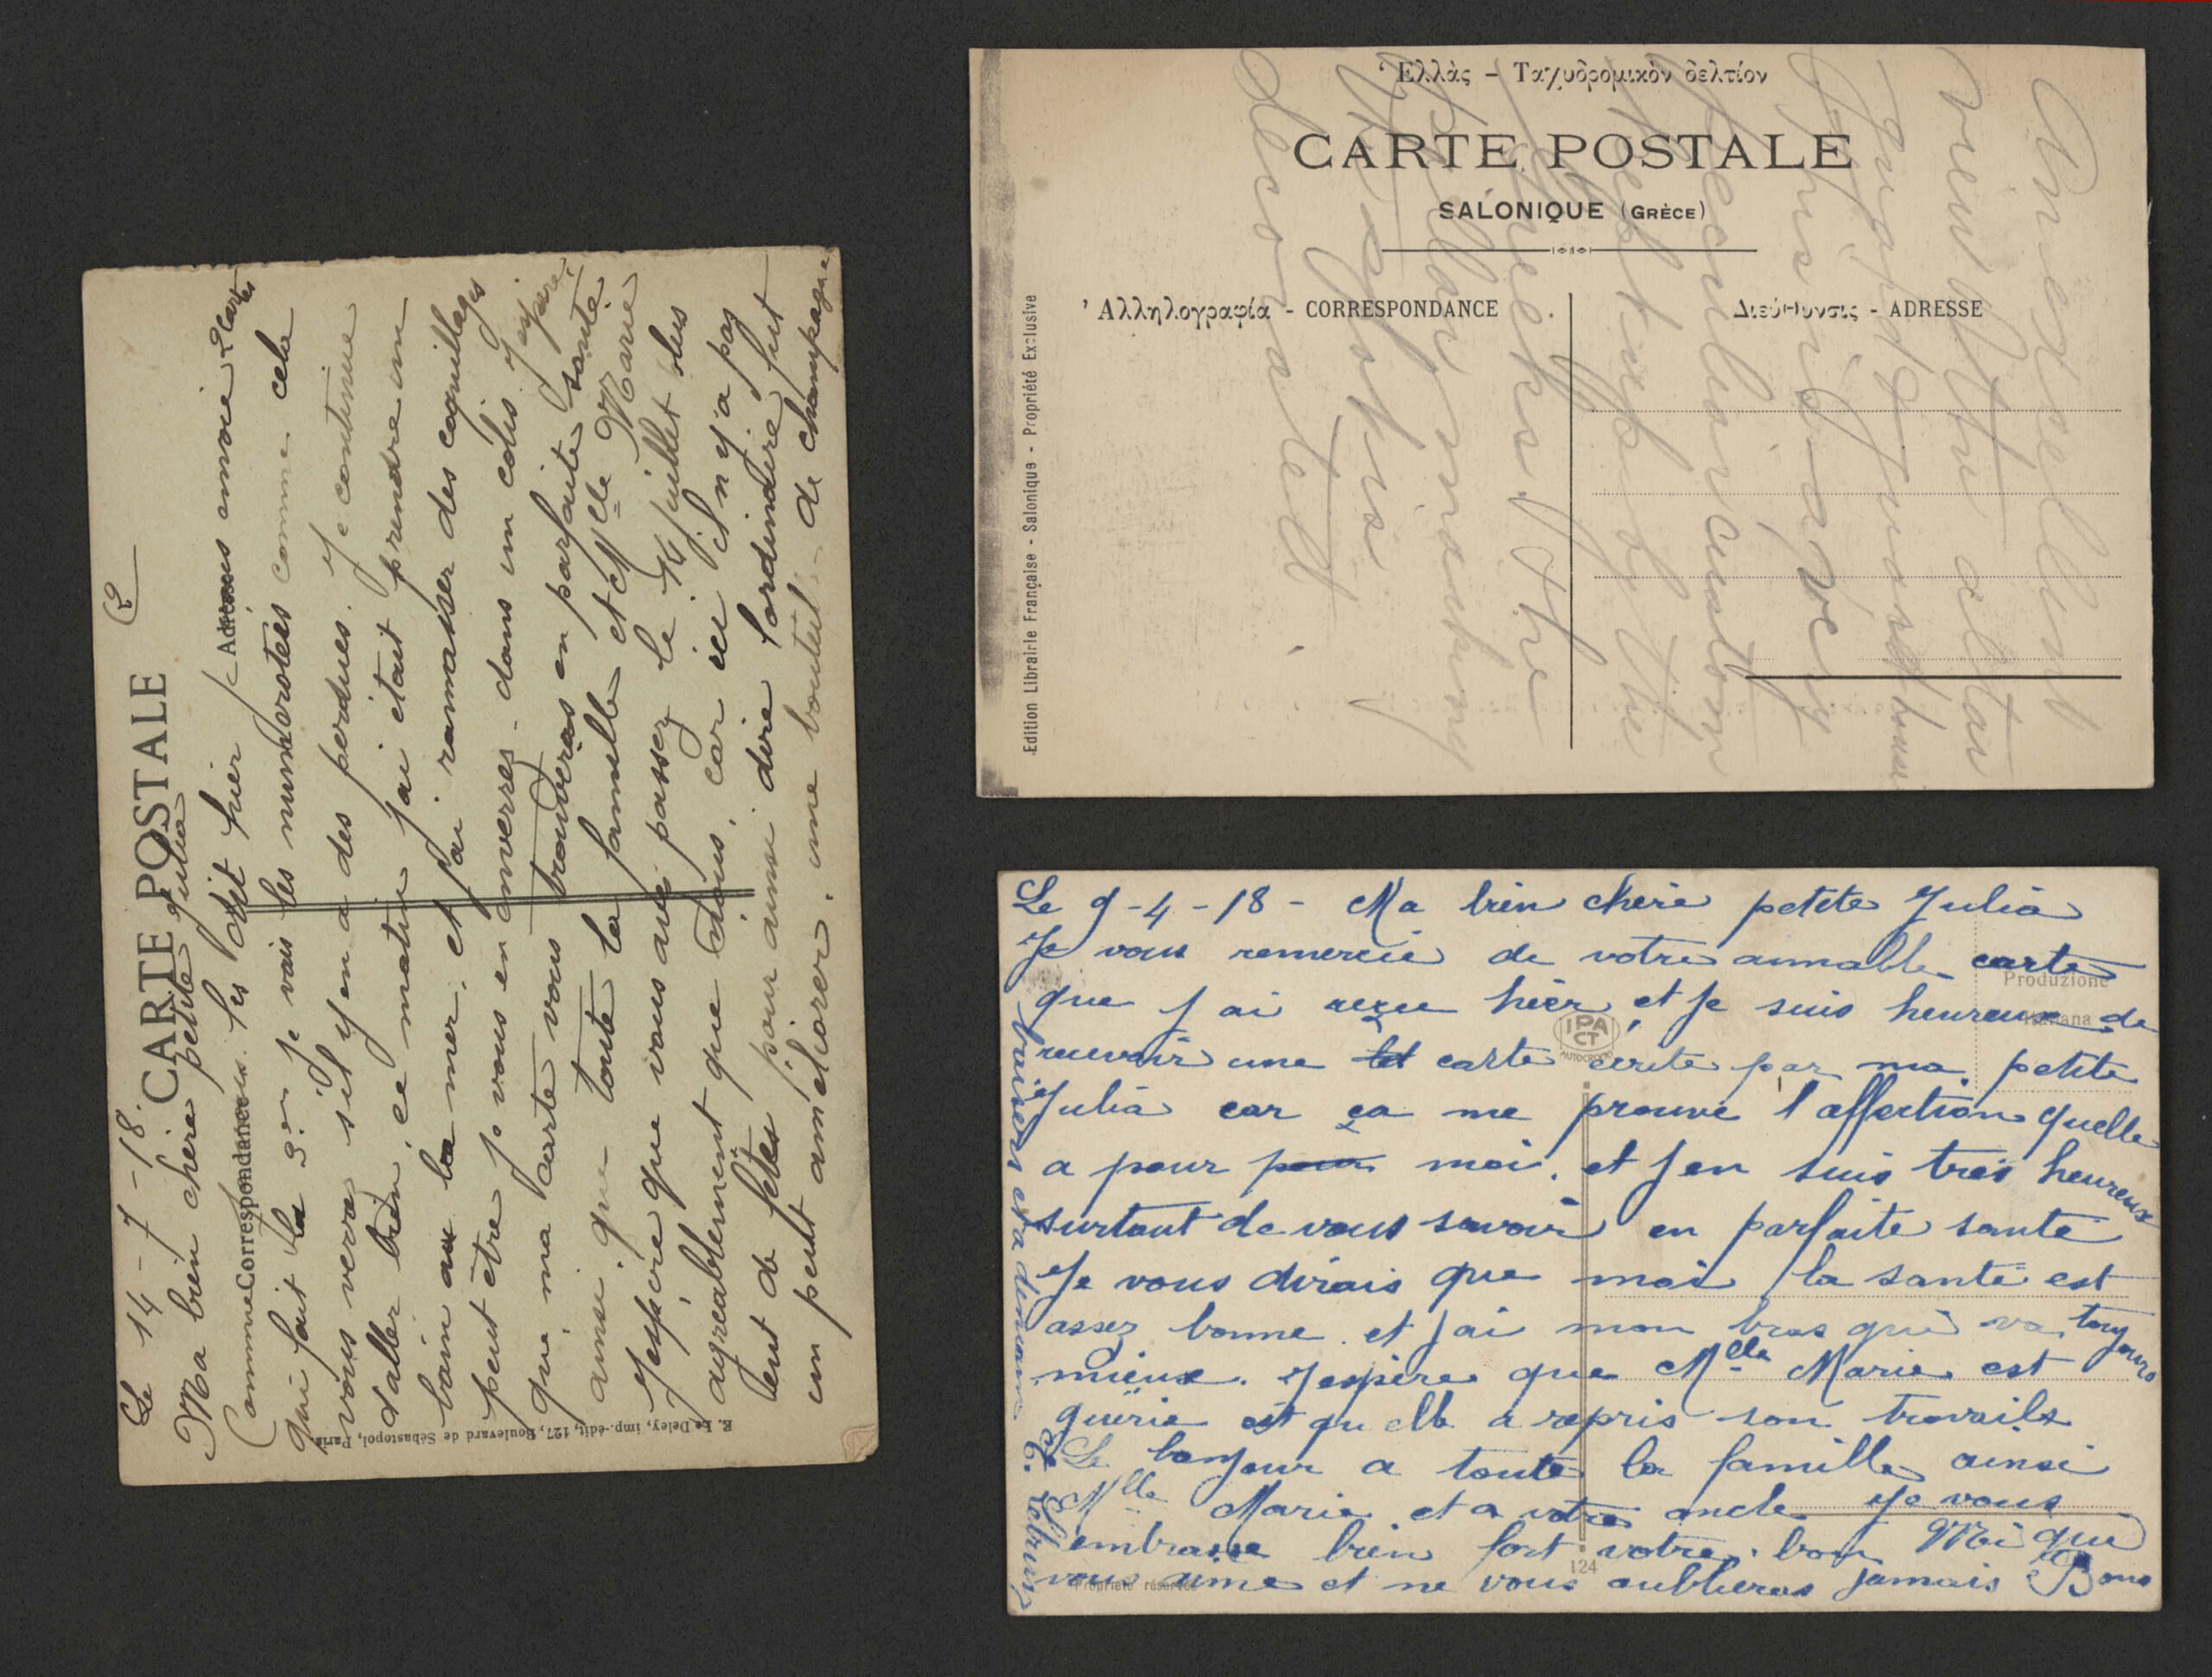 CARTE POSTALE
(2
Le 14-7-18.
Ma bien chère petite Julia
Comme je vous les dit hier je vous envoie 2 cartes
Correspondance
Adresse
qui fait la 3em je vais les numérotées comme cela
vous verrez s'il y en a des perdues. Je continue
d'aller bien, ce matin j'ai était prendre un
bain au la mer, et j'ai ramasser des coquillages
peut être je vous en enverrez dans un colis. J'espère
que, ma carte vous trouveras en parfaite santé
ainsi que toute la famille et Mlle Marie
J'espère que vous avé passez le 14 juillet plus
agréablement que nous, car ici il n'y a pas
eut de fêtes pour ainsi dire l'ordinaire fut
un peut améliorer, une bouteil de champagne
E. Le Deley, imp.-édit., 127, Boulevard de Sébastopol, Paris
Ἑλλὰς – Ταχυδρομικὸν δελτίον
CARTE POSTALE
SALONIQUE (GRÈCE)
Ἀλληλογραφία - CORRESPONDANCE
Διεύθυνσις - ADRESSE
Edition Librairie Française - Salonique - Propriété Exclusive
An excellent
view of the altar
peculiar custom
kept up by the
Greeks, the
pillar
decorated
Le 9-4-18 - Ma bien chère petite Julia
Je vous remercie de votre aimable carte
que j'ai reçue hièr, et je suis heureux de
recevoir une let carte écrite par ma petite
Julia car ça me prouve l'affection quelle
a pour pour moi. et j'en suis très heureux
surtout de vous savoir en parfaite santé
Je vous dirais que moi la santé est
assez bonne. et j'ai mon bras qui va toujours
mieux. J'espère que Mlle Marie est
guérie et qu'elle a repris son travails
Le bonjour a toute la famille ainsi
Mlle Marie et a votre oncle Je vous
embrasse bien fort votre bon Mi qui
vous aime et ne vous oublieras jamais Bons
baisers et a demain
Produzione
Italiana
IPA
CT
AUTOCROMO
124
Propriété réservée